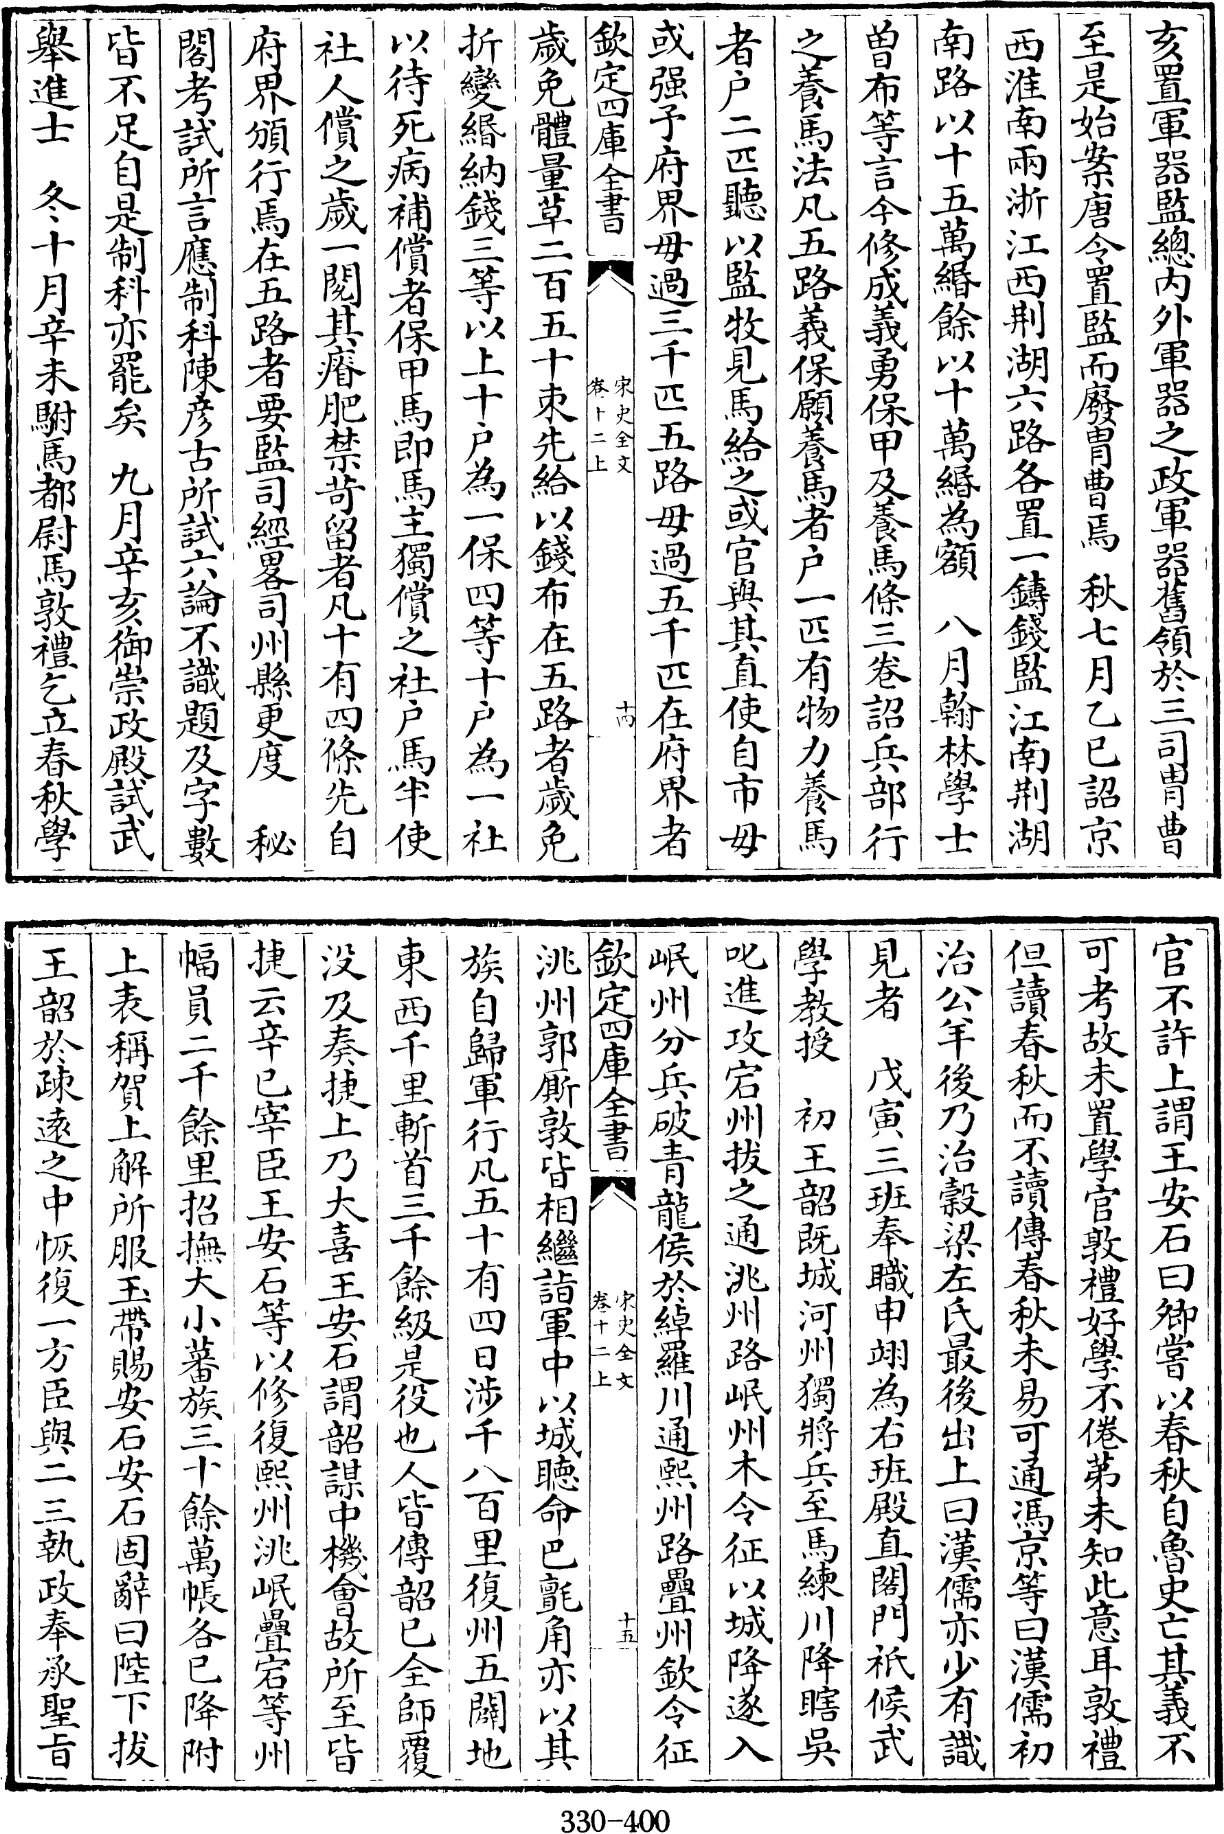 亥置軍器監總内外軍器之政軍器舊領於三司胄曹
至是始案唐令置監而廢胄曹焉　秋七月乙巳詔京
西淮南兩浙江西荆湖六路各置一鑄錢監江南荆湖
南路以十五萬緡餘以十萬緡為額　八月翰林學士
曽布等言今修成義勇保甲及養馬條三卷詔兵部行
之養馬法凡五路義保願養馬者户一匹有物力養馬
者户二匹聽以監牧見馬給之或官與其直使自市毋
或强予府界毋過三千匹五路毋過五千匹在府界者
欽定四庫全書
宋史全文
卷十二上
十四
歲免體量草二百五十束先給以錢布在五路者歲免
折變緡納錢三等以上十户為一保四等十户為一社
以待死病補償者保甲馬即馬主獨償之社户馬半使
社人償之歲一閱其瘠肥禁苛留者凡十有四條先自
府界頒行焉在五路者要監司經畧司州縣更度　秘
閣考試所言應制科陳彦古所試六論不識題及字數
皆不足自是制科亦罷矣　九月辛亥御崇政殿試武
舉進士　冬十月辛未駙馬都尉馬敦禮乞立春秋學
官不許上謂王安石曰卿嘗以春秋自魯史亡其義不
可考故未置學官敦禮好學不倦第未知此意耳敦禮
但讀春秋而不讀傳春秋未易可通馮京等曰漢儒初
治公羊後乃治榖梁左氏最後出上曰漢儒亦少有識
見者　戊寅三班奉職申翊為右班殿直閤門祇候武
學教授　初王韶既城河州獨將兵至馬練川降瞎吳
叱進攻宕州拔之通洮州路岷州木令征以城降遂入
岷州分兵破青龍俟於綽羅川通熙州路疊州欽令征
欽定四庫全書
宋史全文
卷十二上
十五
洮州郭厮敦皆相繼詣軍中以城聽命巴氈角亦以其
族自歸軍行凡五十有四日涉千八百里復州五闢地
東西千里斬首三千餘級是役也人皆傳韶已全師覆
沒及奏捷上乃大喜王安石謂韶謀中機會故所至皆
捷云辛巳宰臣王安石等以修復熙州洮岷疊宕等州
幅員二千餘里招撫大小蕃族三十餘萬帳各已降附
上表稱賀上解所服玉帶賜安石安石固辭曰陛下拔
王韶於疎遠之中恢復一方臣與二三執政奉承聖旨
330-400